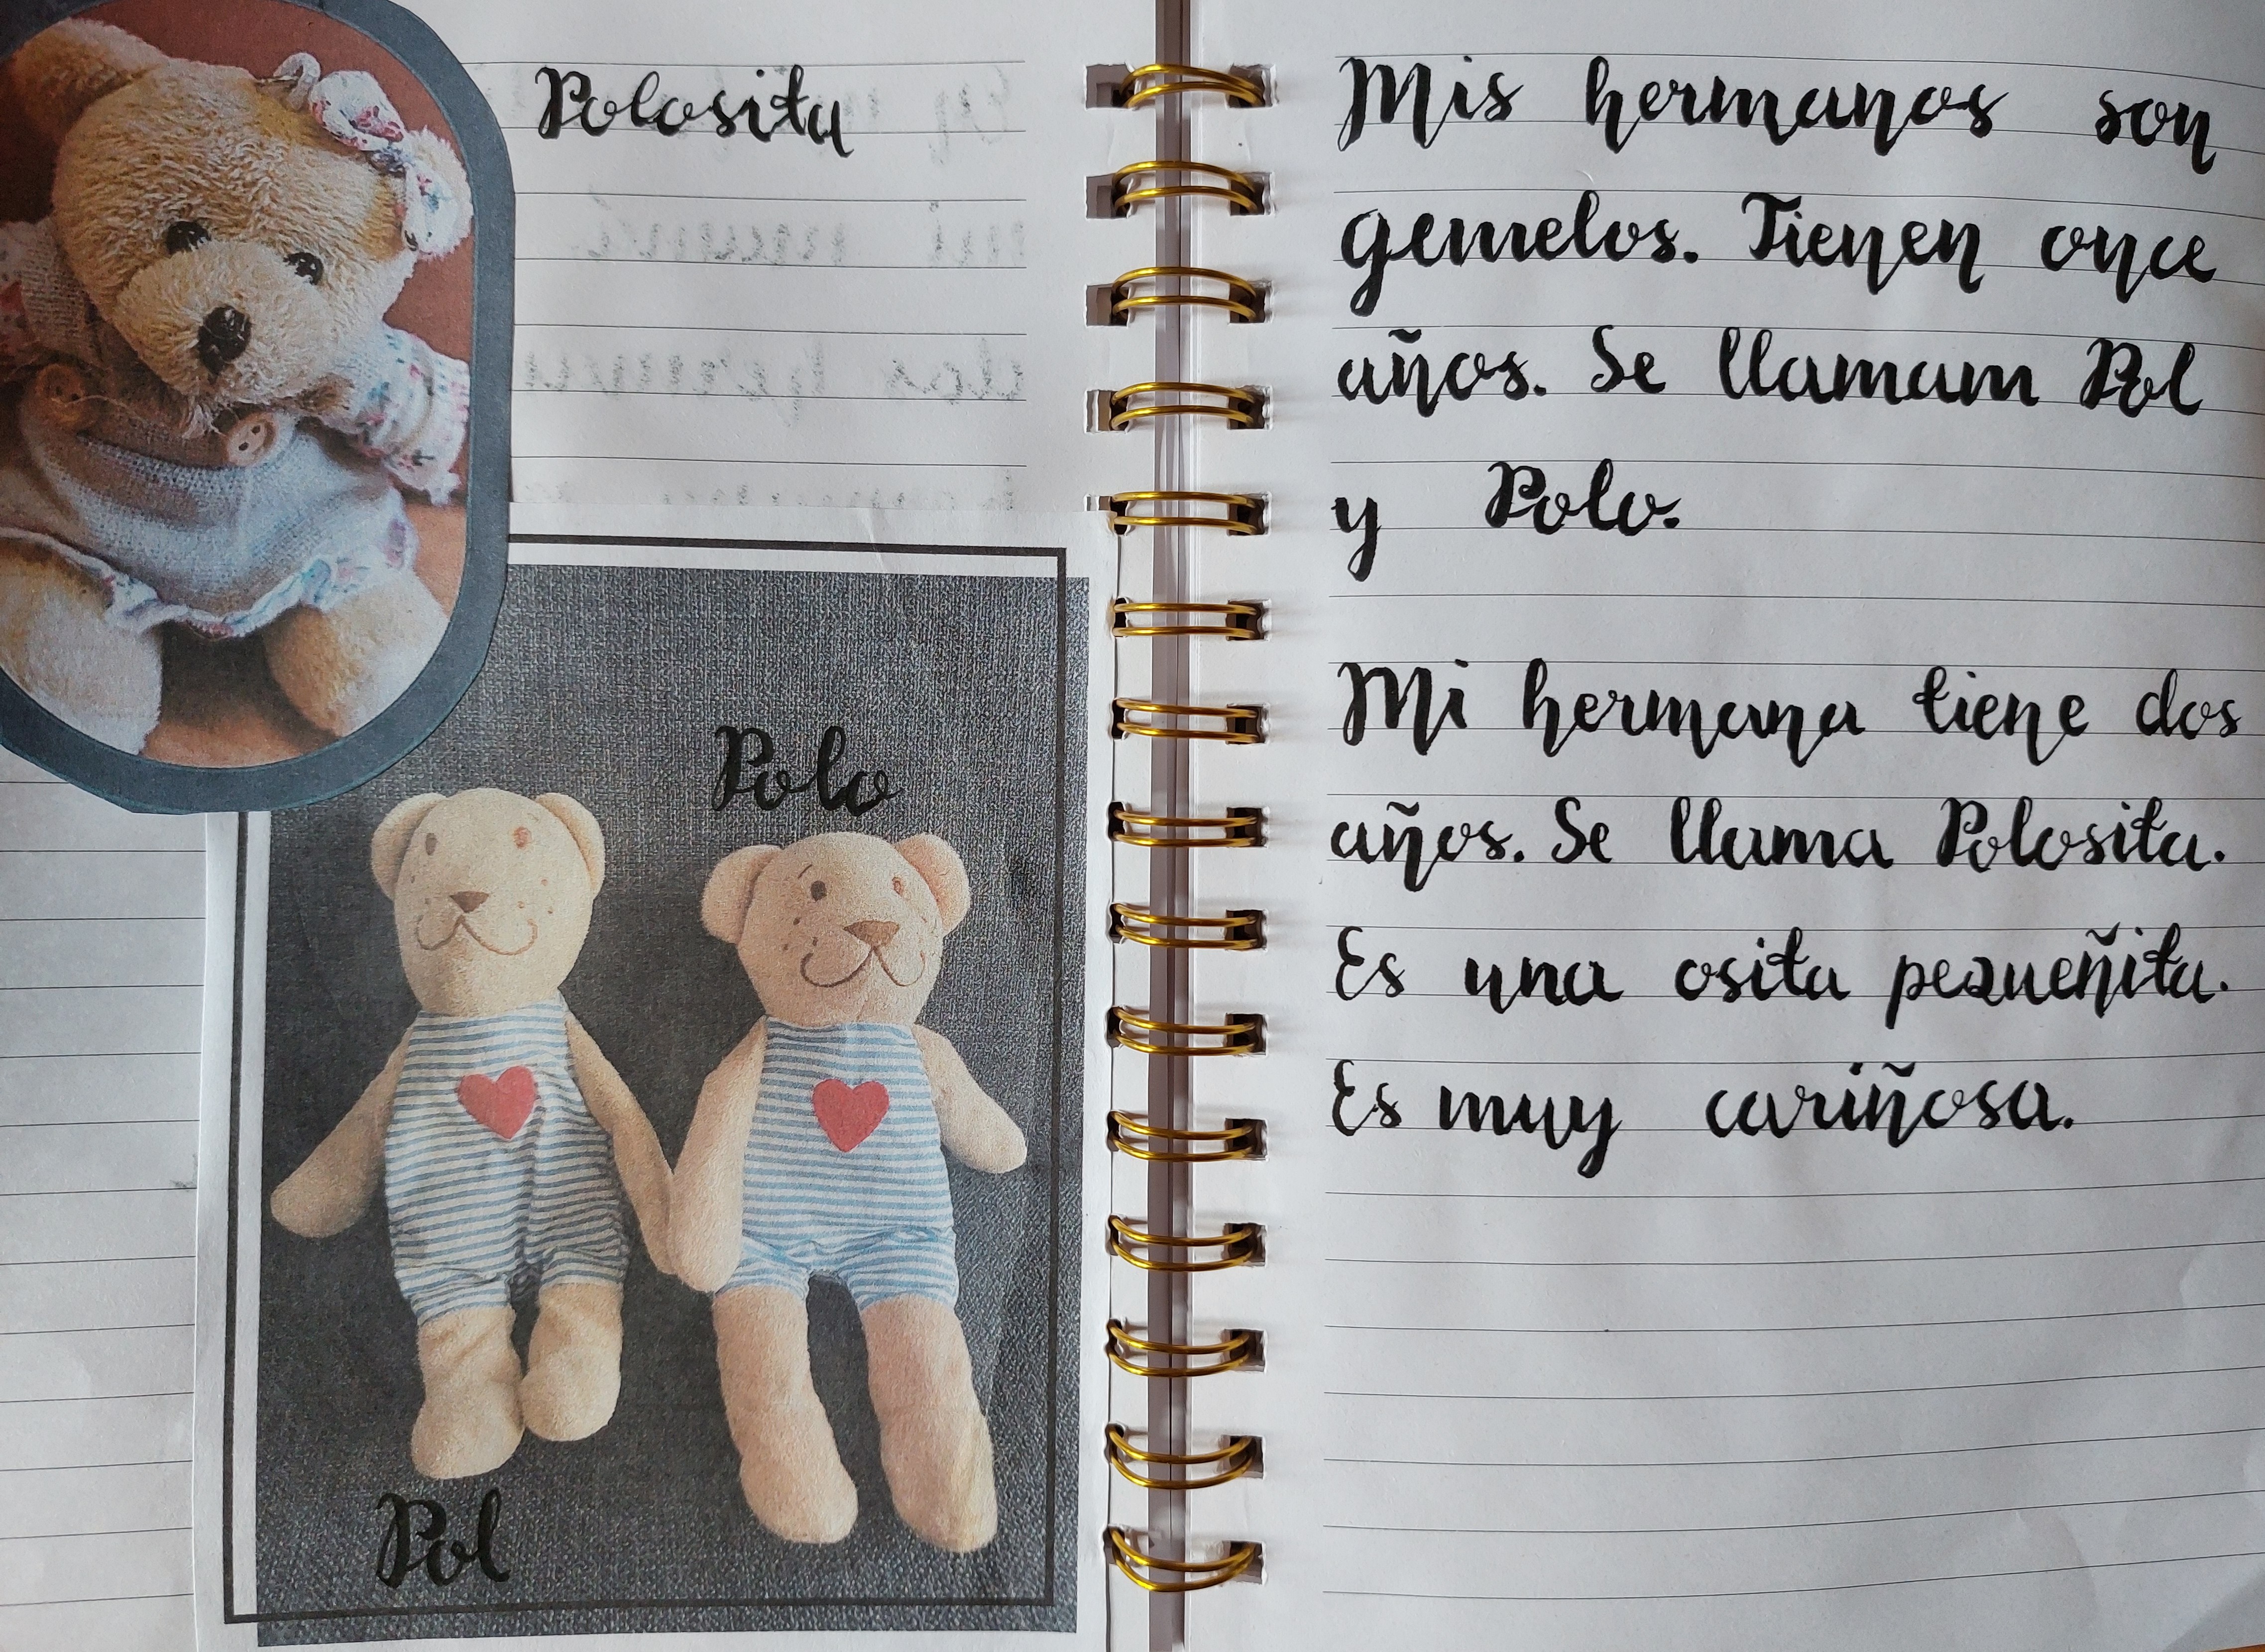 Polosita
Polo
Pol
Mis hermanos son
gemelos. Tienen once
años. Se llamam Pol
y Polo.
Mi hermana tiene dos
años. Se llama Polosita.
Es una osita pequeñita.
Es muy cariñosa.